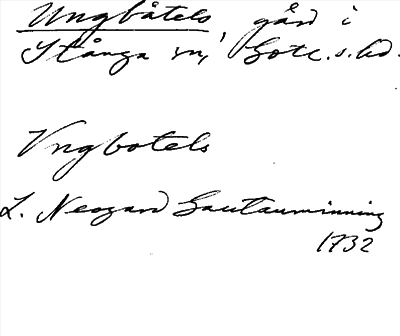 Ungbåtels gård i
Stånga sn, Gotl. s. hd.
Vngbotels
L. Neogard Gautauminning
1732